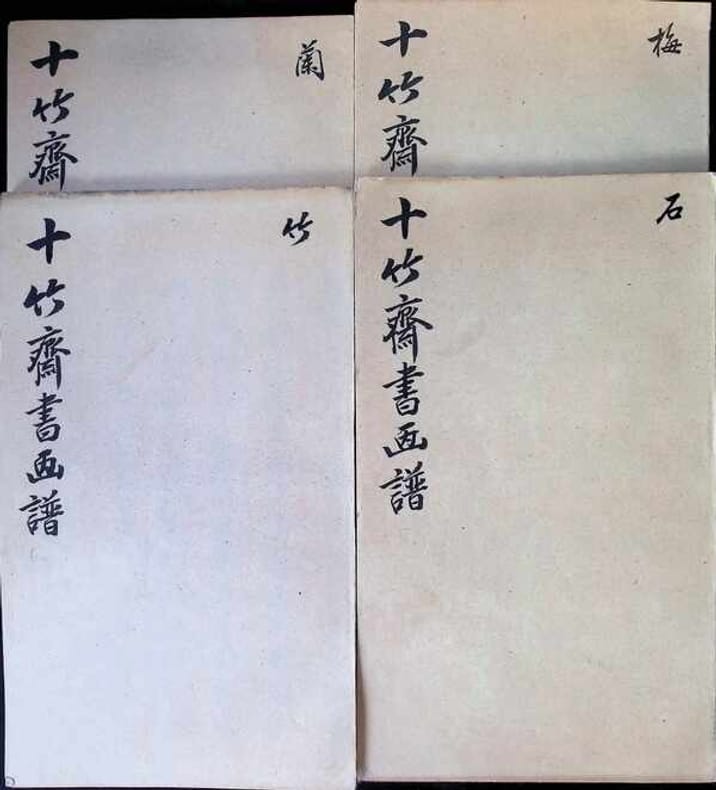 蘭
十竹齋
梅
十竹齋
竹
十竹齋書画譜
石
十竹齋書画譜